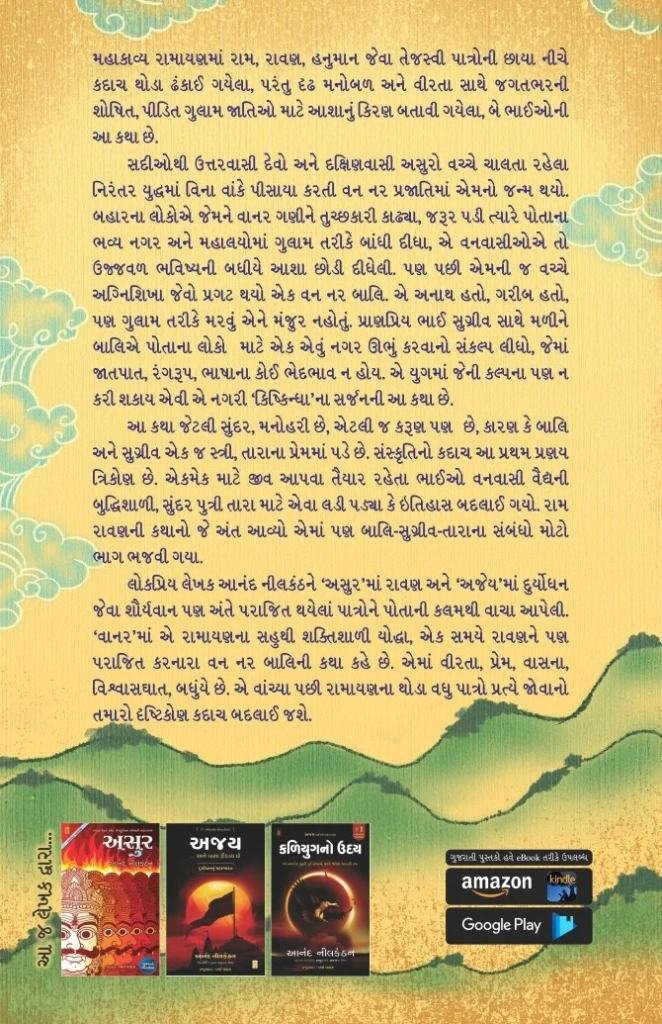 મહાકાવ્ય રામાયણમાં રામ, રાવણ, હનુમાન જેવા તેજસ્વી પાત્રોની છાયા નીચે
કદાચ થોડા ઢંકાઈ ગયેલા, પરંતુ દૃઢ મનોબળ અને વીરતા સાથે જગતભરની
શોષિત, પીડિત ગુલામ જાતિઓ માટે આશાનું કિરણ બતાવી ગયેલા, બે ભાઈઓની
આ કથા છે.
સદીઓથી ઉત્તરવાસી દેવો અને દક્ષિણવાસી અસુરો વચ્ચે ચાલતા રહેલા
નિરંતર યુદ્ધમાં વિના વાંકે પીસાયા કરતી વન નર પ્રજાતિમાં એમનો જન્મ થયો.
બહારના લોકોએ જેમને વાનર ગણીને તુચ્છકારી કાઢ્યા, જરૂર પડી ત્યારે પોતાના
ભવ્ય નગર અને મહાલયોમાં ગુલામ તરીકે બાંધી દીધા, એ વનવાસીઓએ તો
ઉજ્જવળ ભવિષ્યની બધીયે આશા છોડી દીધેલી. પણ પછી એમની જ વચ્ચે
અગ્નિશિખા જેવો પ્રગટ થયો એક વન નર બાલિ. એ અનાથ હતો, ગરીબ હતો,
પણ ગુલામ તરીકે મરવું એને મંજુર નહોતું. પ્રાણપ્રિય ભાઈ સુગ્રીવ સાથે મળીને
બાલિએ પોતાના લોકો માટે એક એવું નગર ઊભું કરવાનો સંકલ્પ લીધો, જેમાં
જાતપાત, રંગરૂપ, ભાષાના કોઈ ભેદભાવ ન હોય. એ યુગમાં જેની કલ્પના પણ ન
કરી શકાય એવી એ નગરી ‘કિષ્કિન્ધા’ના સર્જનની આ કથા છે.
આ કથા જેટલી સુંદર, મનોહરી છે, એટલી જ કરૂણ પણ છે, કારણ કે બાલિ
અને સુગ્રીવ એક જ સ્ત્રી, તારાના પ્રેમમાં પડે છે. સંસ્કૃતિનો કદાચ આ પ્રથમ પ્રણય
ત્રિકોણ છે. એકમેક માટે જીવ આપવા તૈયાર રહેતા ભાઈઓ વનવાસી વૈદ્યની
બુદ્ધિશાળી, સુંદર પુત્રી તારા માટે એવા લડી પડ્યા કે ઇતિહાસ બદલાઈ ગયો. રામ
રાવણની કથાનો જે અંત આવ્યો એમાં પણ બાલિ-સુગ્રીવ-તારાના સંબંધો મોટો
ભાગ ભજવી ગયા.
લોકપ્રિય લેખક આનંદ નીલકંઠને ‘અસુર’માં રાવણ અને ‘અજેય’માં દુર્યોધન
જેવા શૌર્યવાન પણ અંતે પરાજિત થયેલાં પાત્રોને પોતાની કલમથી વાચા આપેલી.
‘વાનર’માં એ રામાયણના સહુથી શક્તિશાળી યોદ્ધા, એક સમયે રાવણને પણ
પરાજિત કરનારા વન નર બાલિની કથા કહે છે. એમાં વીરતા, પ્રેમ, વાસના,
વિશ્વાસઘાત, બધુંયે છે. એ વાંચ્યા પછી રામાયણના થોડા વધુ પાત્રો પ્રત્યે જોવાનો
તમારો દૃષ્ટિકોણ કદાચ બદલાઈ જશે.
આ જ લેખક દ્વારા...
અસુર
આનંદ નીલકંઠન
અજય
આનંદ નીલકંઠન
કળિયુગનો ઉદય
આનંદ નીલકંઠન
ગુજરાતી પુસ્તકો હવે eBook તરીકે ઉપલબ્ધ
amazon kindle
Google Play